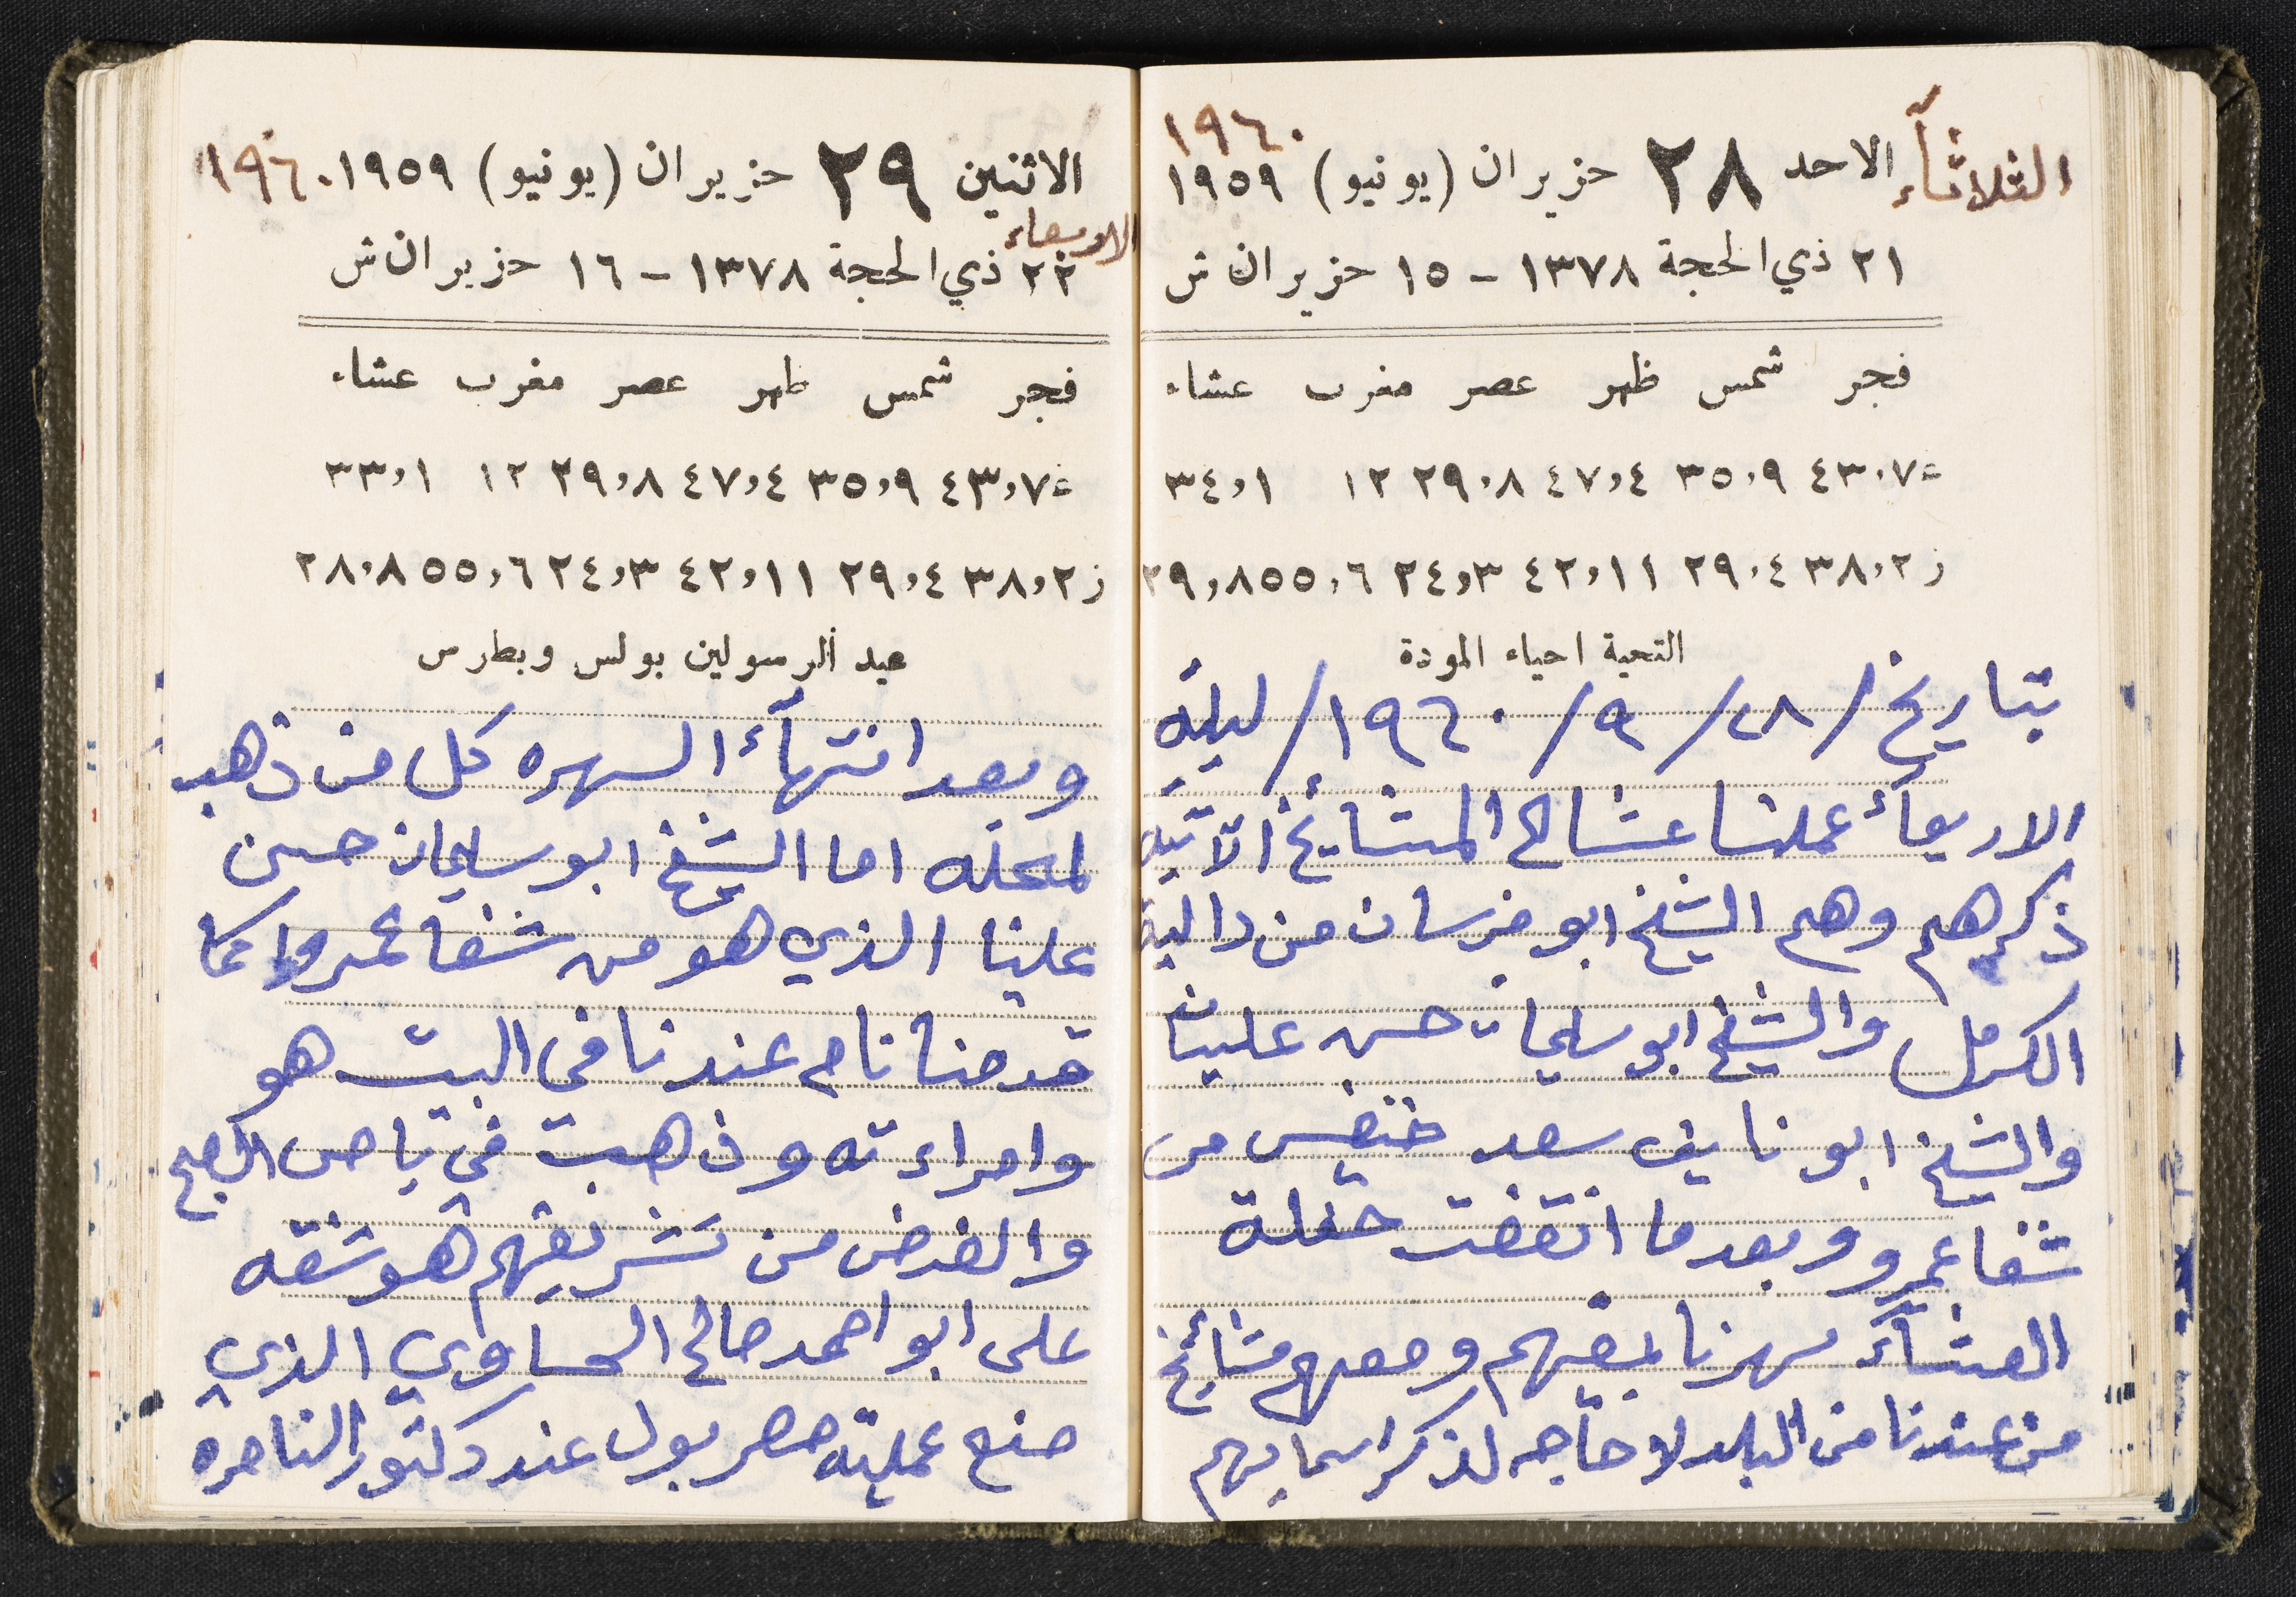 الثلاثآء الاحد ٢٨ حزيران (يونيو) ١٩٥٩ ١٩٦٠
٢١ ذي الحجة ١٣٧٨ - ١٥ حزيران ش
فجر شمس ظهر عصر مغرب عشاء
٤٣،٧ ٣٥،٩ ٤٧،٤ ٢٩،٨ ١٢ ٣٤،١
ز ٣٨،٢ ٢٩،٤ ٤٢،١١ ٢٤،٣ ٥٥،٦ ٢٩،٨
التحية احياء المودة
بتاريخ /٢٨/ ٩/ ١٩٦٠/ ليلة
الاربعآء عملنا عشا الى المشايخ الآتيه
ذكرهم وهم الشيخ ابو فرسان من دالية
الكرمل والشيخ ابو سليمان حسن عليان
والشيخ ابو نايف سعد خنيفس من
شفاعمرو وبعد ما انقضت حفلة
العشآء سهرنا بمعيتهم ومعهم مشايخ
من عندنا من البلد لا حاجه لذكر اسمايهم
الاثنين ٢٩ حزيران (يونيو) ١٩٥٩ ١٩٦٠
الاربعاء
٢٢ ذي الحجة ١٣٧٨ - ١٦ حزيران ش
فجر شمس ظهر عصر مغرب عشاء
٤٣،٧ ٣٥،٩ ٤٧،٤ ٢٩،٨ ١٢ ٣٣،١
ز ٣٨،٢ ٢٩،٤ ٤٢،١١ ٢٤،٣ ٥٥،٦ ٢٨،٨
عيد الرسولين بولس وبطارس
وبعد انتهآء السهره كل من ذهب
لمحله اما الشيخ ابو سليمان حسن
علينا الذي هو من شفاعمرو
قد منا نام عندنا في البيت هو
وامراءته وذهبت في تاصى الصبح
والغرض من تشريفهم هو شقه
على ابو احمد صالح الحساوي الذي
صنع عملية حصر بول عند دكتور الناصره